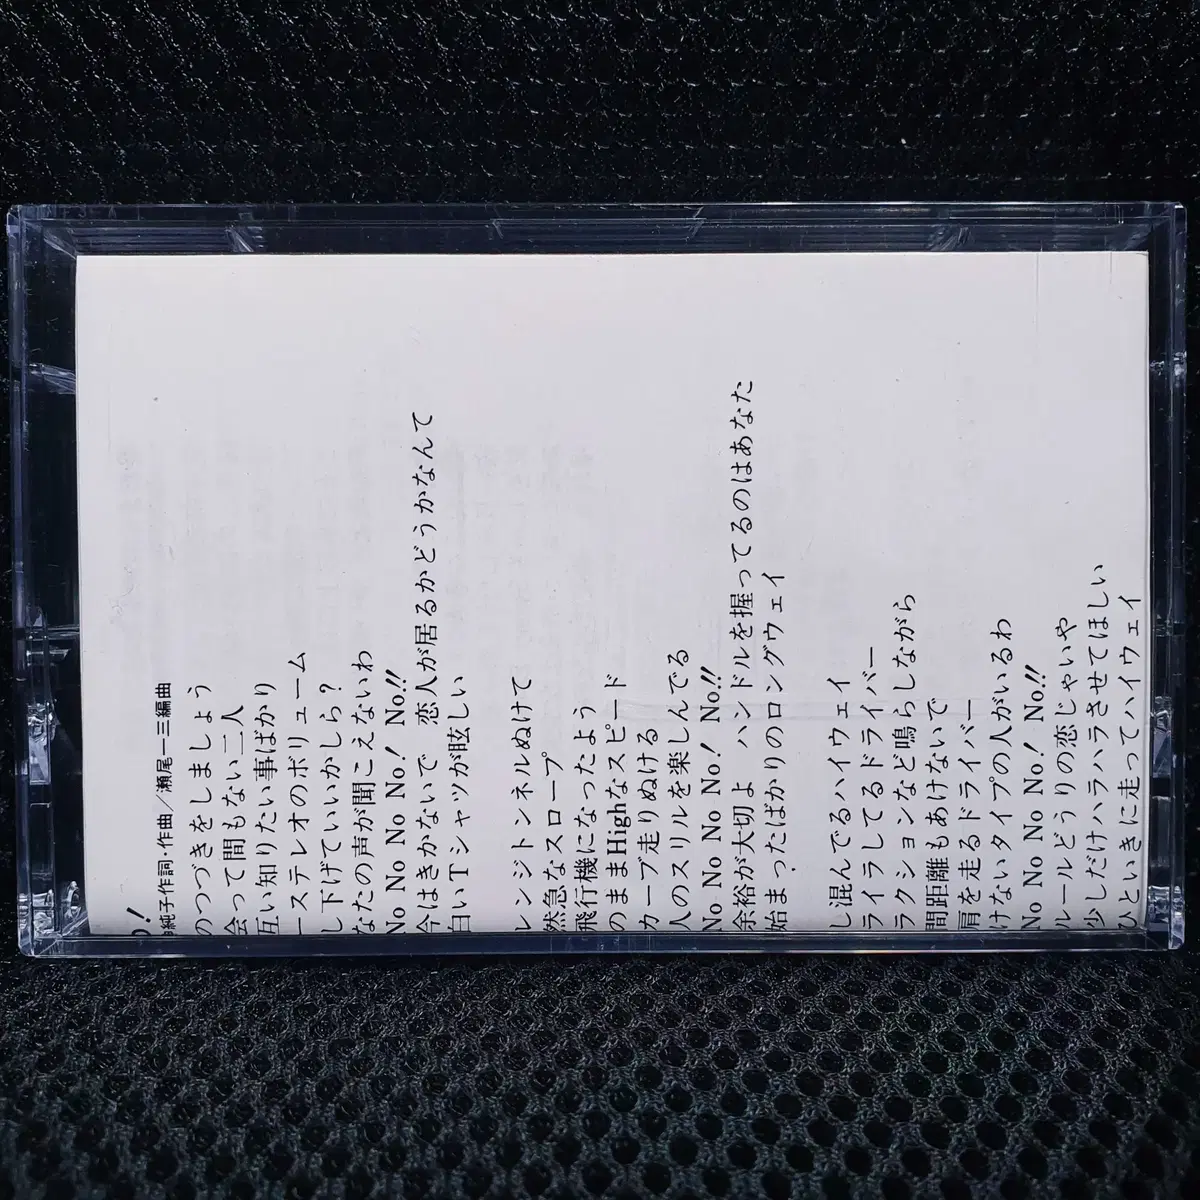 !
純子作詞・作曲／瀬尾一三編曲
のつづきをしましょう
会って間もない二人
互い知りたい事ばかり
ーステレオのボリューム
し下げていいかしら?
なたの声が聞こえないわ
No No No No! No!!
今はきかないで 恋人が居るかどうかなんて
白いTシャツが眩しい
レンジトンネルぬけて
然急なスロープ
飛行機になったよう
のままHighなスピード
カーブ走りぬける
人のスリルを楽しんでる
No No No No! No!!
余裕が大切よ ハンドルを握ってるのはあなた
始まったばかりのロングウェイ
し混んでるハイウェイ
ライラしてるドライバー
ラクションなど鳴らしながら
間距離もあけないで
肩を走るドライバー
けないタイプの人がいるわ
No No No No! No!!
ルールどうりの恋じゃいや
少しだけハラハラさせてほしい
ひといきに走ってハイウェイ